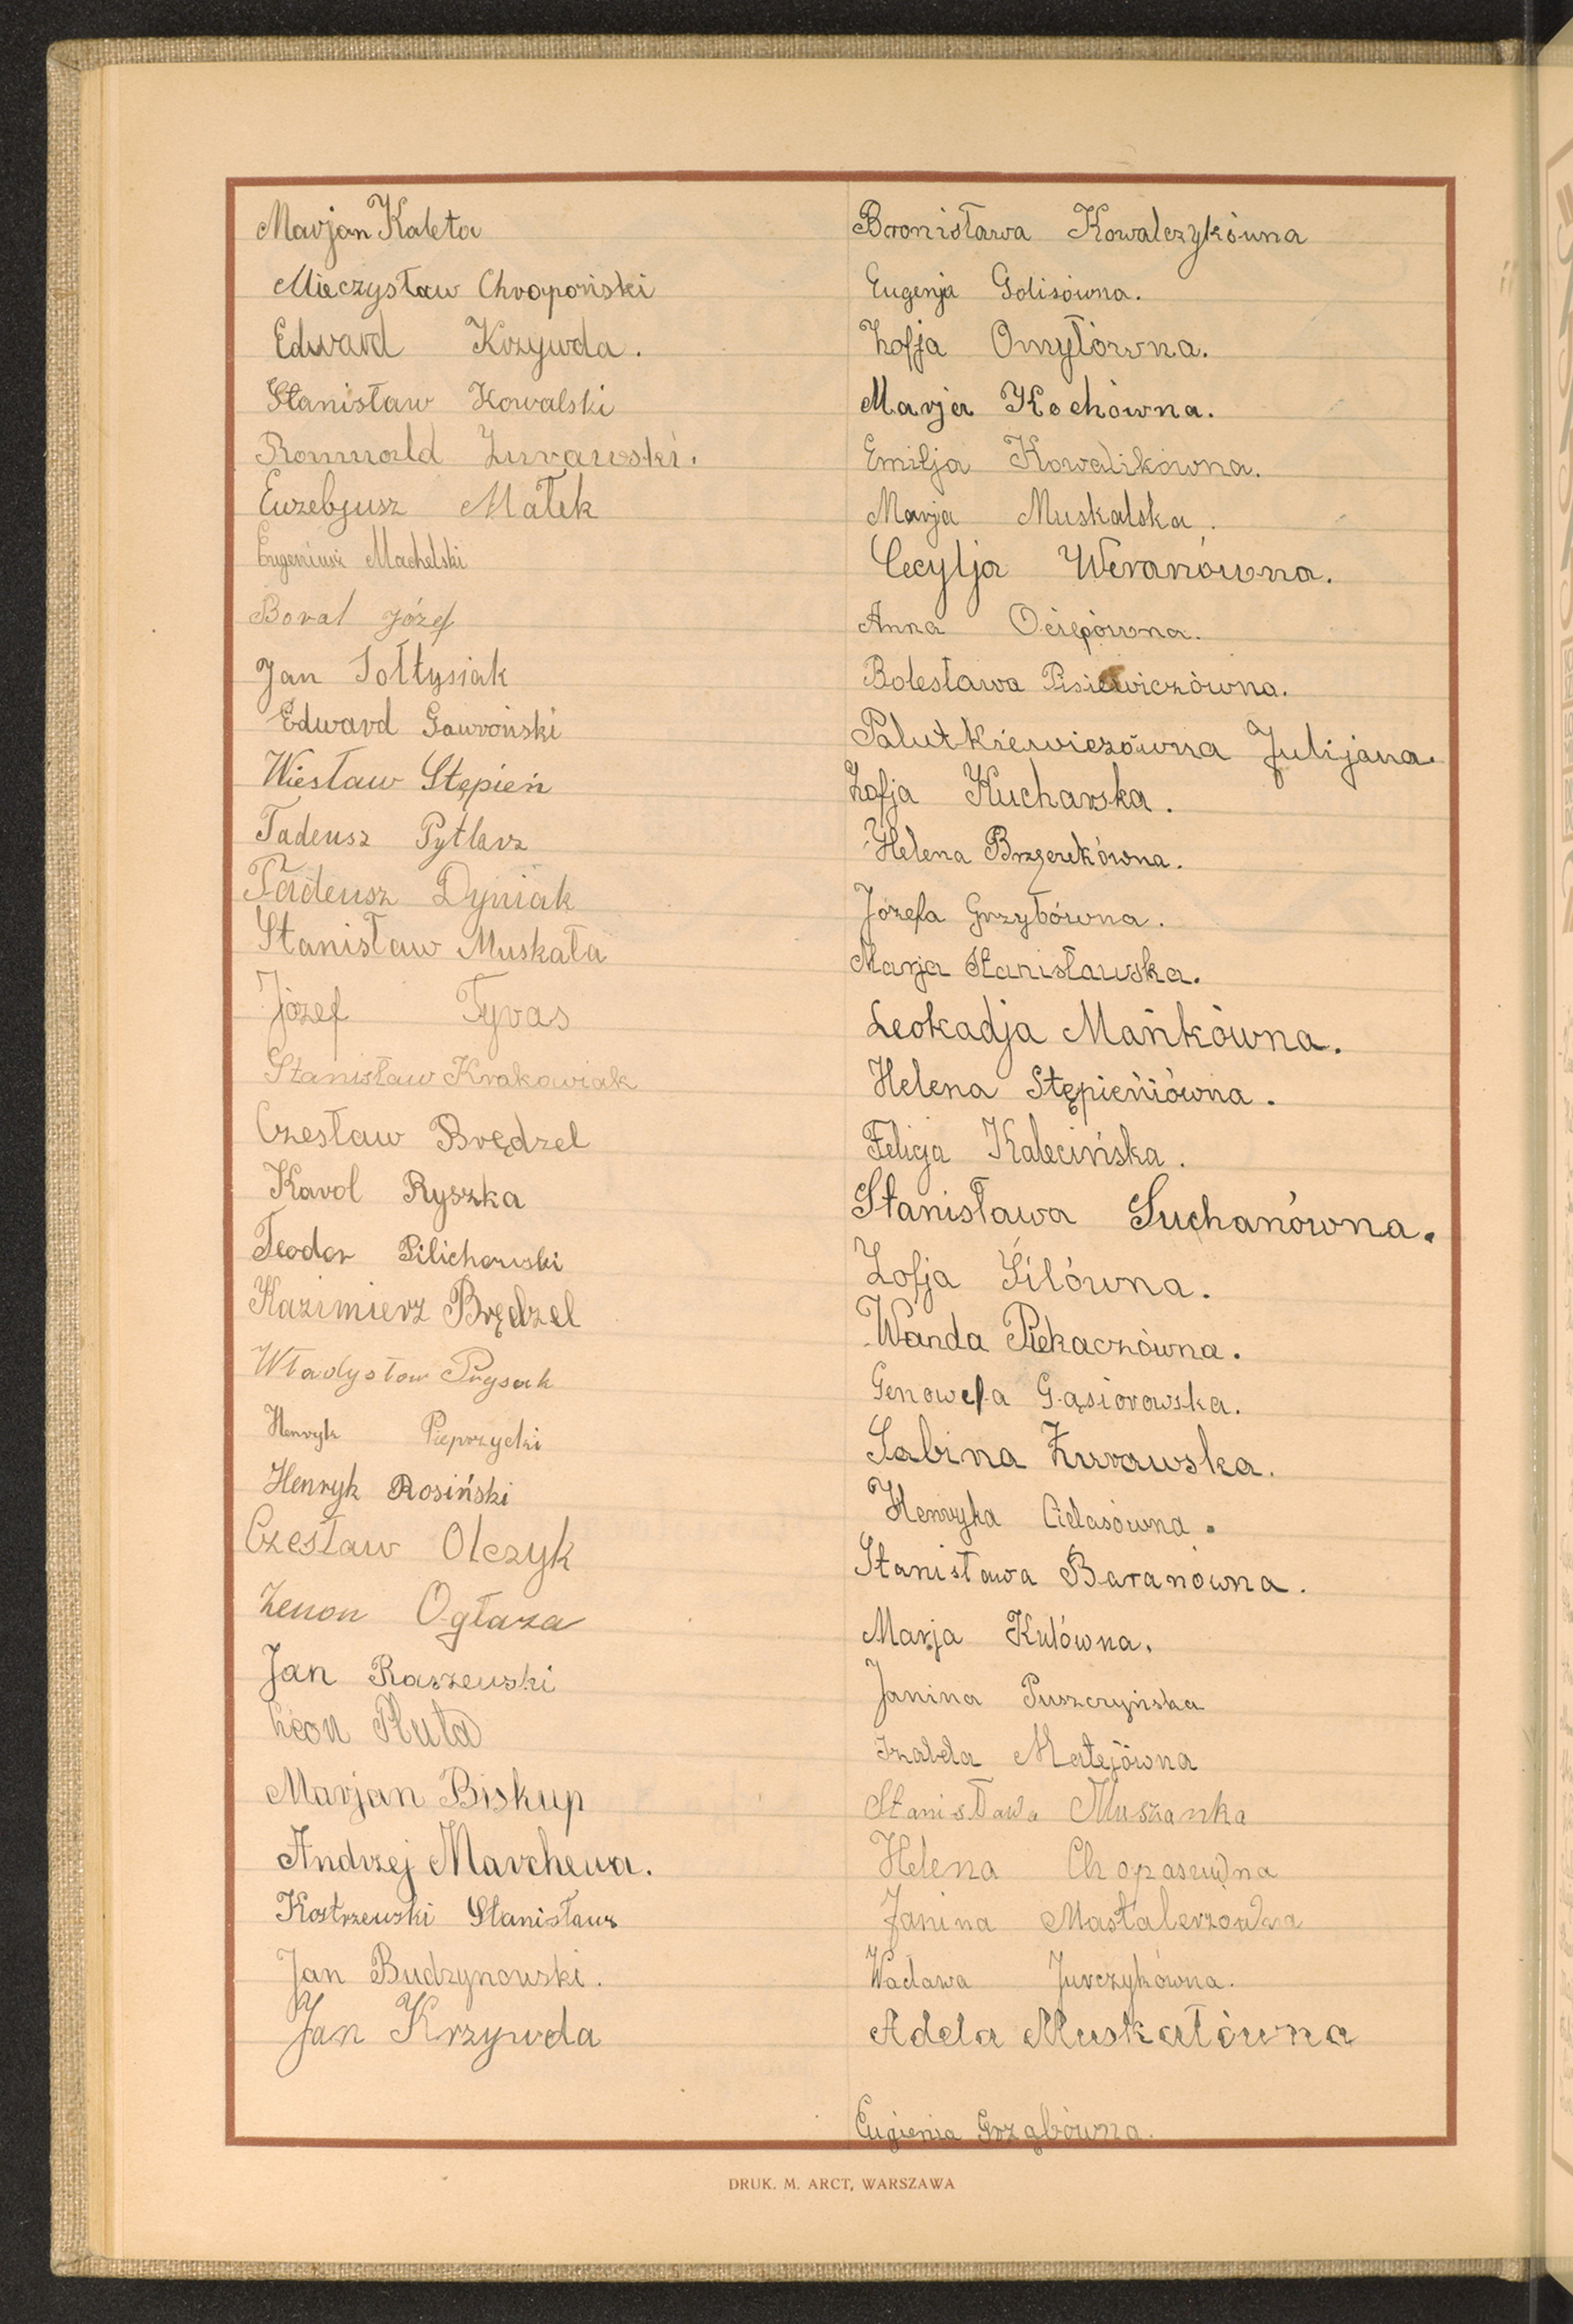 Marjan Kaleta
Mieczysław Chropoński
Edward Krzywda.
Stanisław Kowalski
Romuald Żurawski.
Euzebjusz Małek
Eugeniusz Machelski
Boral Józef
Jan Sołtysiak
Edward Gawroński
Wiesław Stępień
Tadeusz Pytlarz
Tadeusz Dyniak
Stanisław Muskała
Józef Tyras
Stanisław Krakowiak
Czesław Brędzel
Karol Ryszka
Teodor Pilichowski
Kazimierz Brędzel
Władysław Prysak
Henryk Pieprzycki
Henryk Rosiński
Czesław Olczyk
Zenon Ogłaza
Jan Raszewski
Leon Pluta
Marjan Biskup
Andrzej Marchewa.
Kostrzewski Stanisław
Jan Budzynowski.
Jan Krzywda
Bronisława Kowalczykówna
Eugenja Golisówna.
Zofja Omyłówna.
Marja Kochówna.
Emilja Kowalikówna.
Marja Muskalska.
Cecylja Weranówna.
Anna Ociepówna.
Bolesława Pisiewiczówna.
Palutkiewiczówna Julijana.
Zofja Kucharska.
Helena
Józefa Grzybówna.
Marja Stanisławska.
Leokadja Mańkówna.
Helena Stępieniówna.
Felicja Kalecińska.
Stanisława Suchanówna.
Zofja Siłówna.
Wanda Piekaczówna.
Genowefa Gąsiorowska.
Sabina Żurawska.
Henryka Cielasówna.
Stanisława Baranówna.
Marja Kulówna.
Janina Puszczyńska
Izabela Matejówna
Stanisława Muszanka
Helena
Janina Mastalerzówna
Wacława Jurczykówna.
Adela Muskałówna
Eugienia Grząbówna.
DRUK. M. ARCT, WARSZAWA